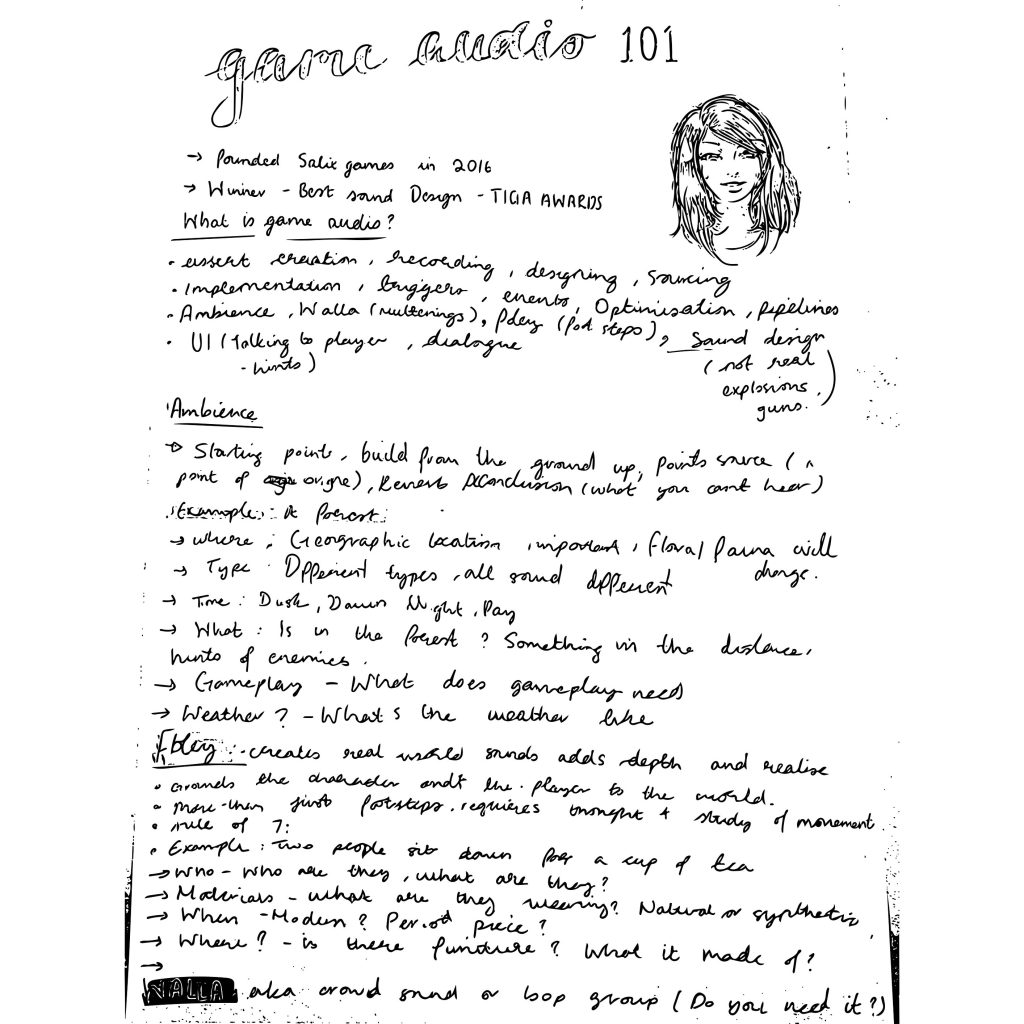 game audio 101
→ Founded Salix games in 2016
→ Winner - Best sound Design - TIGA AWARDS
What is game audio?
• assert creation, recording, designing, sourcing
• Implementation, triggers, events, Optimisation, pipelines
• Ambience, Walla (mutterings), foley (foot steps), Sound design
• UI (Talking to player, dialogue (not real
- hints) explosions,
guns.)
Ambience
→ Starting points, build from the ground up, points source (a
point of origne), Reverb, (what you cant hear)
Example: A Forest:
→ where: Geographic location important, flora/fauna will
→ Type: Different types, all sound different change.
→ Time: Dusk, Dawn Night, Day
→ What: Is in the forest? Something in the distance,
hints of enemies.
→ Gameplay - What does gameplay need
→ Weather? - What's the weather like
foley - creates real world sounds adds depth and realise
• Grounds the character and the player to the world.
• More then just footsteps. requires thought + study of movement
• rule of 7:
• Example: Two people sit down for a cup of tea
→ Who - who are they, what are they?
→ Materials - what are they wearing? Natural or synthetic
→ When - Modern? Period piece?
→ Where? - is there furniture? What it made of?
→
WALLA aka crowd sound or loop group (Do you need it?)